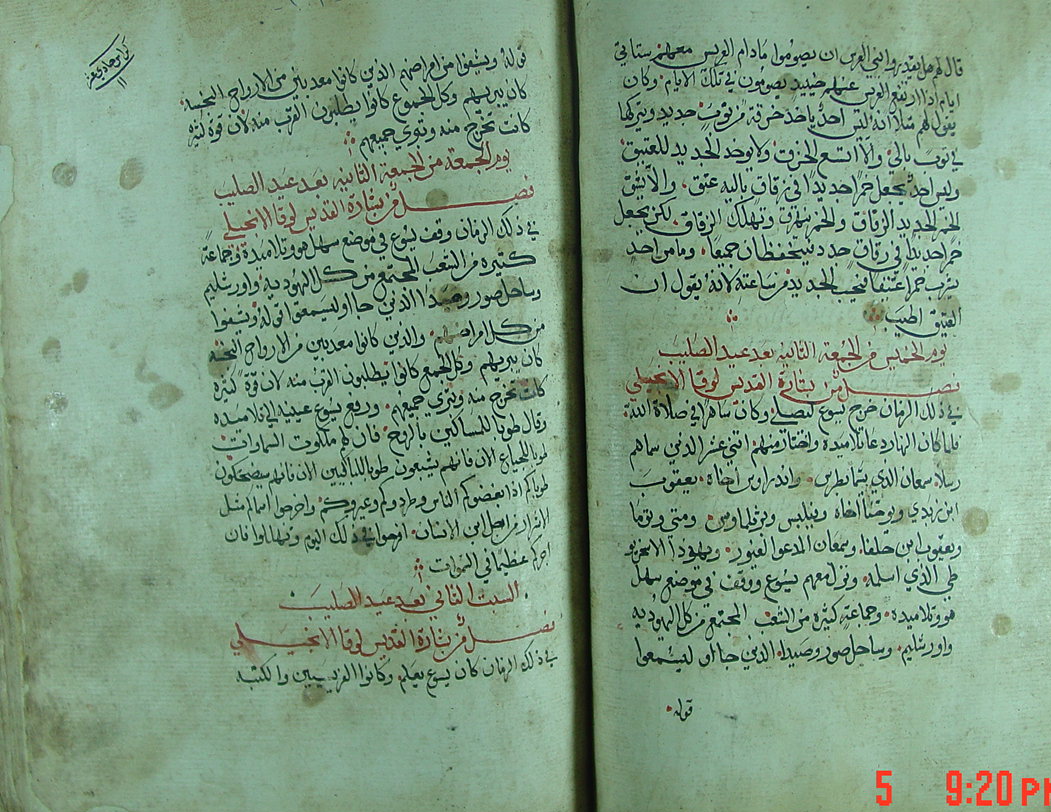 قال لهم هل تقدروا بني العرس ان يصوموا مادام العريس معهم ستاتي
ايام اذا ارتفع العريس عنهم حينيد يصومون في تلك الايام وكان
يقول لهم مثلا انه ليس احد ياخد خرقة من توب جديد ويتركها
في توب بالي والا اتسع الخرق ولا يوجد الجديد للعتيق
وليس احد يجعل خمرا جديدا في زقاق باليه عتق والا يشق
الخمر الجديد الزقاق والخمر تهرق وتهلك الزقاق لكن يجعل
خمرا جديدا في زقاق جدد فيحفظان جميعا وما من احد
يشرب خمرا عتيقا فيبغي الجديد من ساعته لانه يقول ان
العتيق اطيب
يوم الخميس من الجمعة الثانية بعد عيد الصليب
فصل من بشارة القديس لوقا الانجيلي
في ذلك الزمان خرج يسوع ليصلي وكان ساهرا في صلاة الله
فلما كان النهار دعا تلاميده واختار منهم اتني عشر الذين سماهم
رسلا سمعان الذي يسما بطرس واندراوس اخاه يعقوب
ابن زبدي ويوحنا اخاه وفيلبس وبرتلماوس ومتى وتوما
ويعقوب ابن حلفا وسمعان المدعو الغيور ويهودا الاسخريو
طي الذي اسلمه ونزل معهم يسوع ووقف في موضع سهل
هو وتلاميده وجماعة كثيرة من الشعب المجتمع من كل اليهودية
واورشليم وساحل صور وصيدا الذين جااو ليستمعوا
قوله
كراس حادي عشر
١١
قوله ويشفوا من امراضهم الذين كانوا معدبين من الارواح النجسة
كان يبريهم وكل الجموع كانوا يطلبون القرب منه لان قوة كثيرة
كانت تخرج منه وتبري جميعهم
يوم الجمعة من الجمعة الثانية بعد عيد الصليب
فصل من بشارة القديس لوقا الانجيلي
في ذلك الزمان وقف يسوع في موضع سهل هو وتلاميدة وجماعة
كثيره من الشعب المجتمع من كل اليهودية واورشليم
وساحل صور وصيدا الذين جااو ليسمعوا قوله ويشفوا
من كل امراضهم والذين كانوا معدبين من الارواح النجسة
كان يبريهم وكل الجمع كانوا يطلبون القرب منه لان قوة كثيرة
كانت تخرج منه وتبري جميعهم ورفع يسوع عينيه الى تلاميده
وقال طوبا للمساكين بالروح فان لهم ملكوت السماوات
طوبا للجياع الان فانهم يشبعون طوبا للباكيين الان فانهم سيضحكون
طوباكم اذا ابغضوكم الناس وطردوكم وعيروكم واخرجوا اسمالكم مثل
الاشرار من اجل ابن الانسان افرحوا في ذلك اليوم وتهللوا فان
اجركم عظيما في السموات
السبت التاني بعد عيد الصليب
فصل من بشارة القديس لوقا الانجيلي
في ذلك الزمان كان يسوع يعلم وكانوا الفريسيين والكتبه
5 9:20 PM